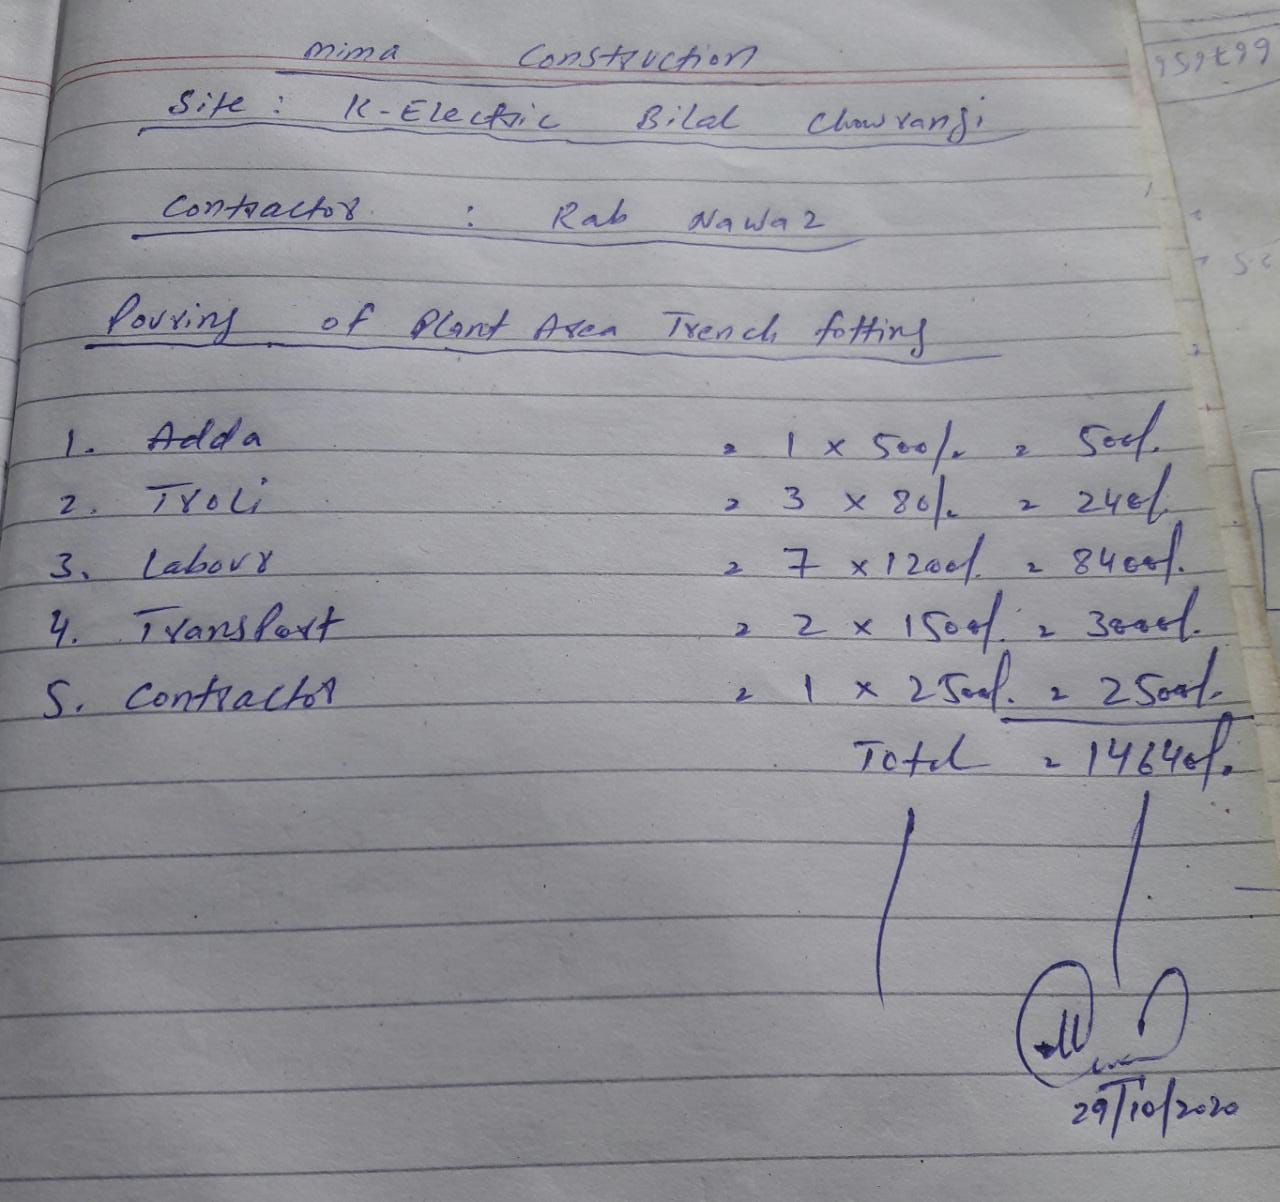 mima Construction
Site : K-Electric Bilal Chowrangi
Contractor : Rab Nawaz
Pouring of Plant Area Trench fotting
1. Adda = 1 x 500/. = 500/.
2. Troli = 3 x 80/. = 240/.
3. Labour = 7 x 1200/. = 8400/.
4. Transport = 2 x 1500/. = 3000/.
5. Contractor = 1 x 2500/. = 2500/.
Total = 14640/.
29/10/2020